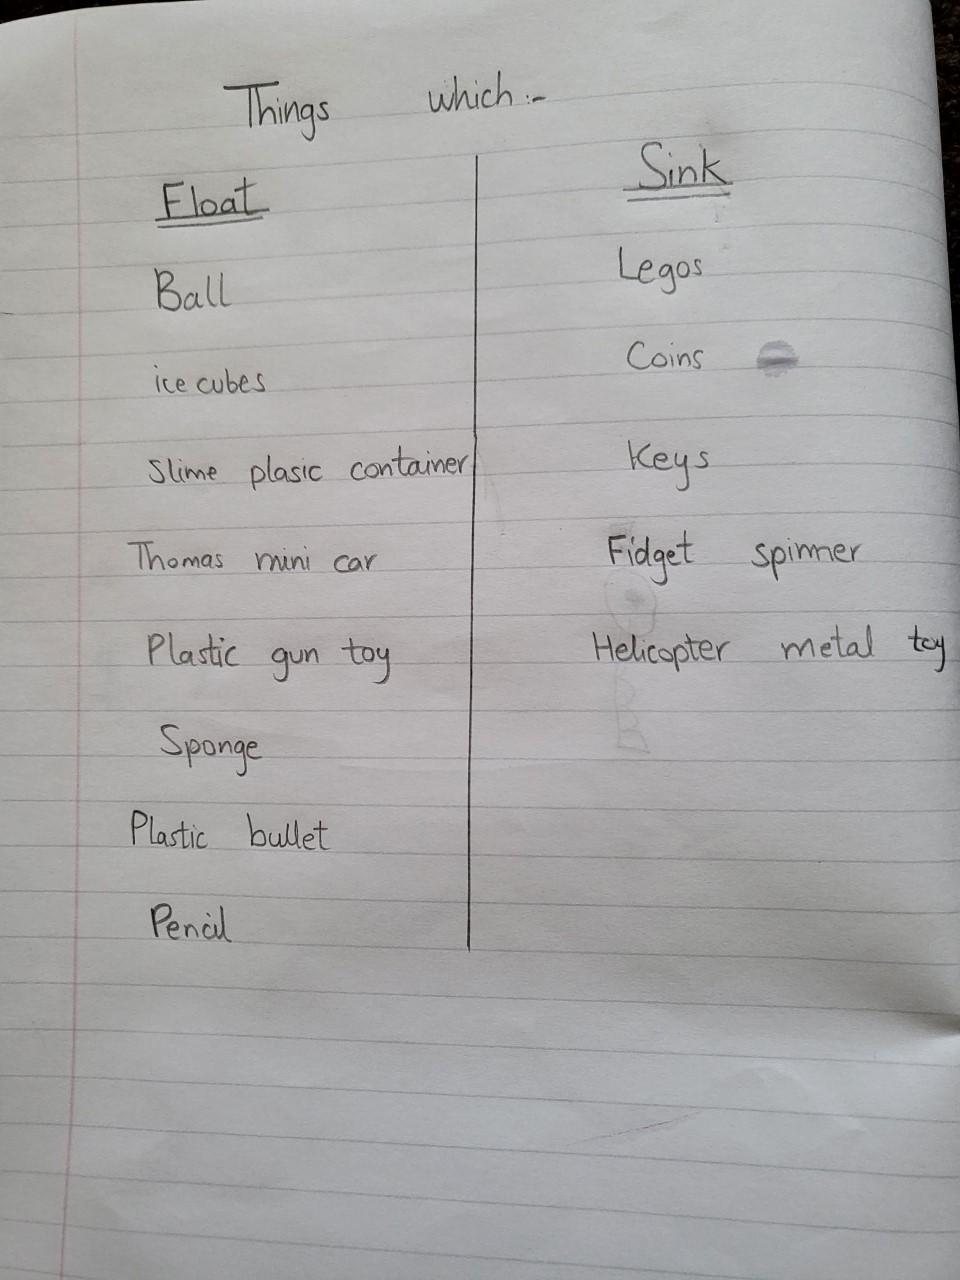 Things which:-
Float
Ball
ice cubes
Slime plasic container
Thomas mini car
Plastic gun toy
Sponge
Plastic bullet
Pencil
Sink
Legos
Coins
Keys
Fidget spinner
Helicopter metal toy